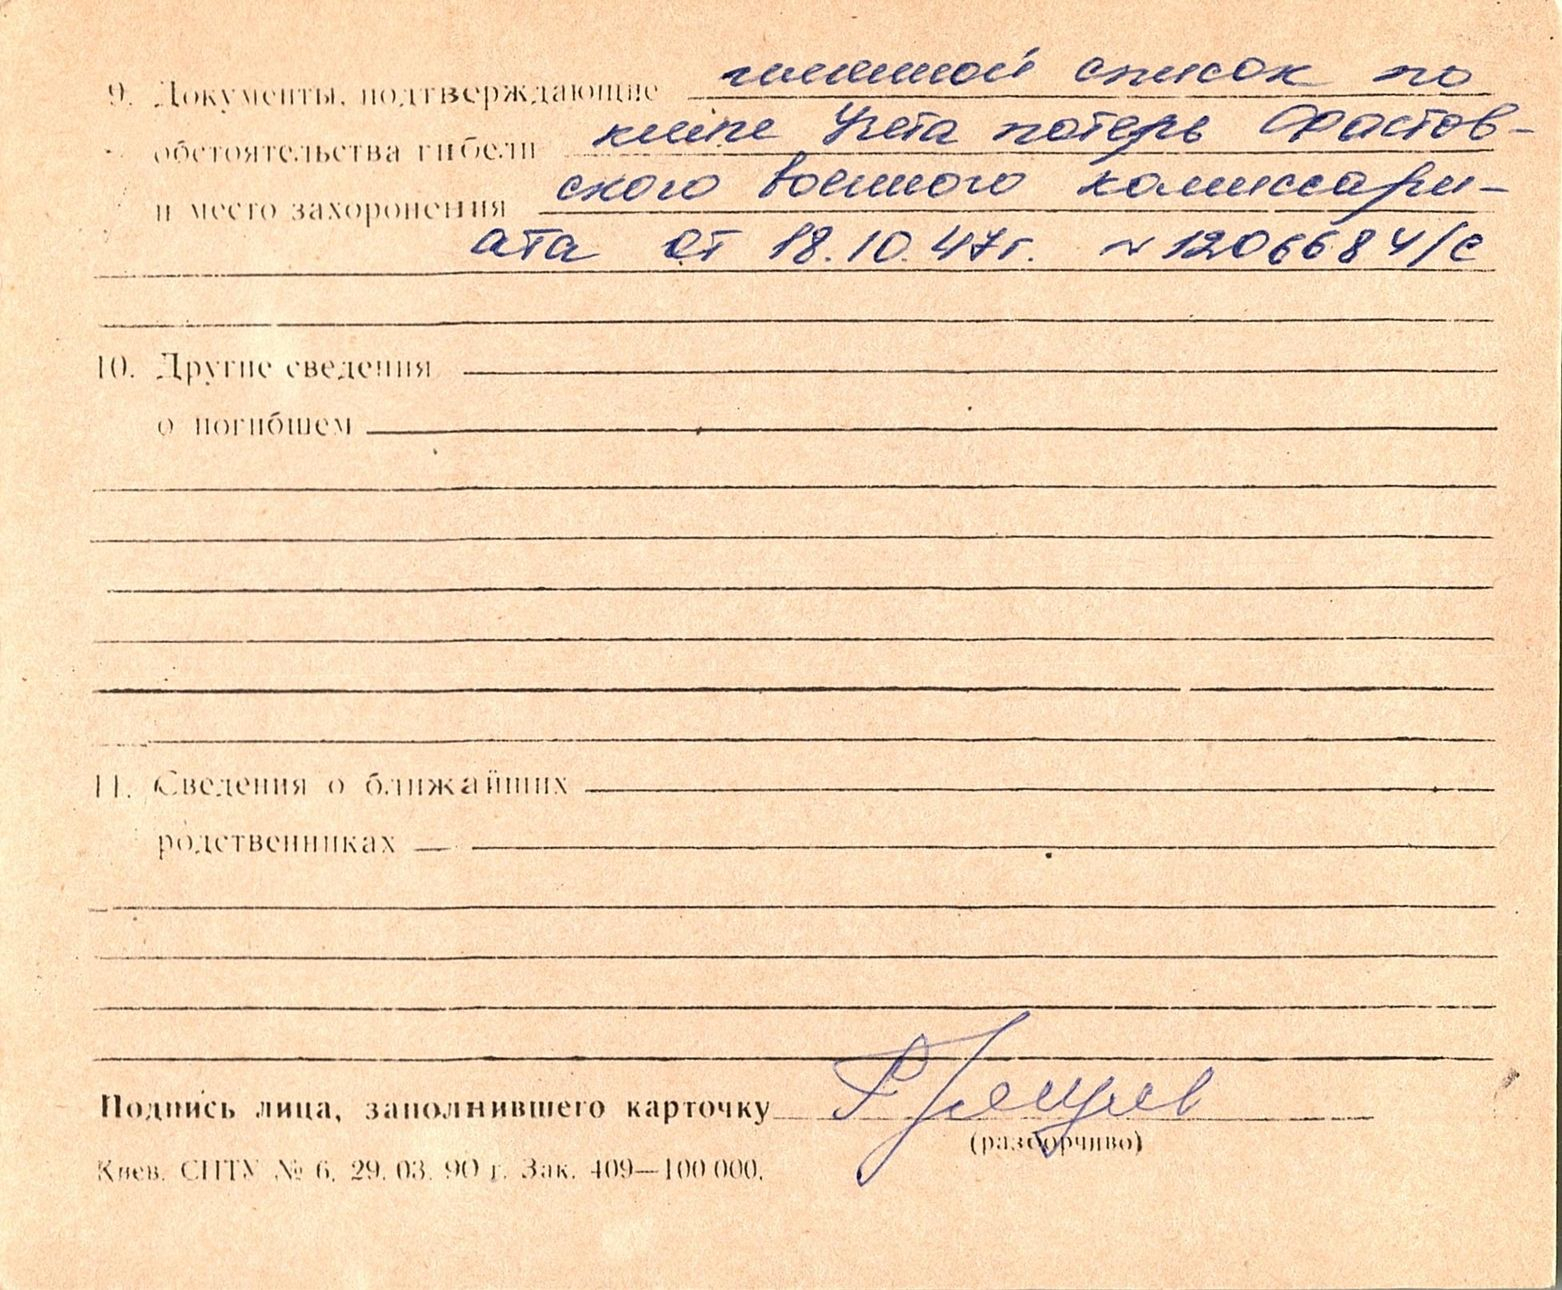 9. Документы, подтверждающие именной список по
обстоятельства гибели книге Учета потерь Фастов-
и место захоронения ского военного комиссари-
ата от 18.10.47г. № 1206684/с
10. Другие сведения
о погибшем
11. Сведения о ближайших
родственниках
Подпись лица, заполнившего карточку
(разборчиво)
Киев. СПТУ № 6. 29. 03. 90 г. Зак. 409—100 000.